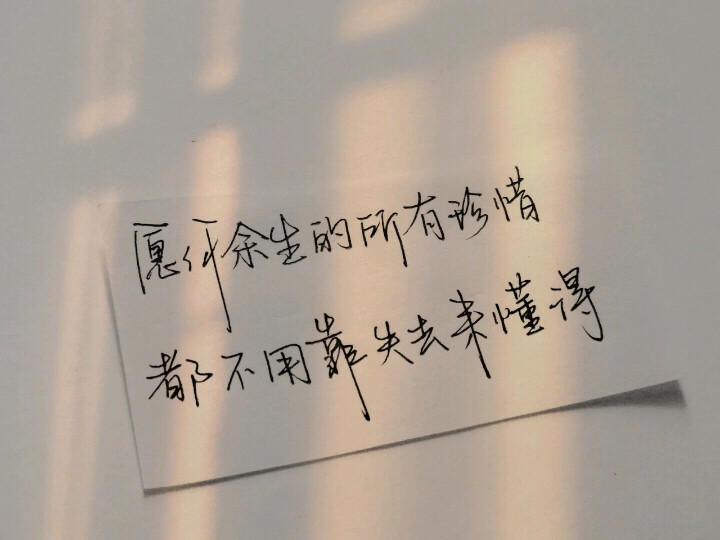 愿你余生的所有珍惜
都不用靠失去来懂得